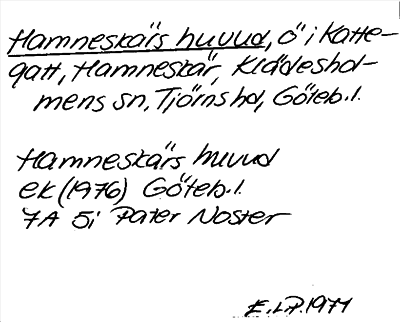 Hamneskärs huvud, ö i Katte-
gatt, Hamneskär, Klädeshol-
mens sn, Tjörns hd, Göteb.l.
Hamneskärs huvud
ek (1976) Göteb.l.
7A 5i Pater Noster
E.L.P. 1977